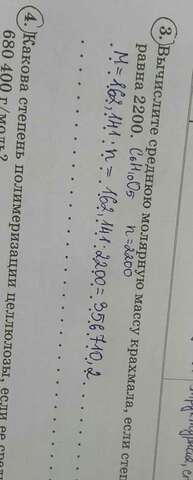 3. Вычислите среднюю молярную массу крахмала, если степ
равна 2200. C6H10O5 n=2200
M = 162,141 · n = 162,141 · 2200 = 356 710,2
4. Какова степень полимеризации целлюлозы, если ее сред
680 400 г/моль?